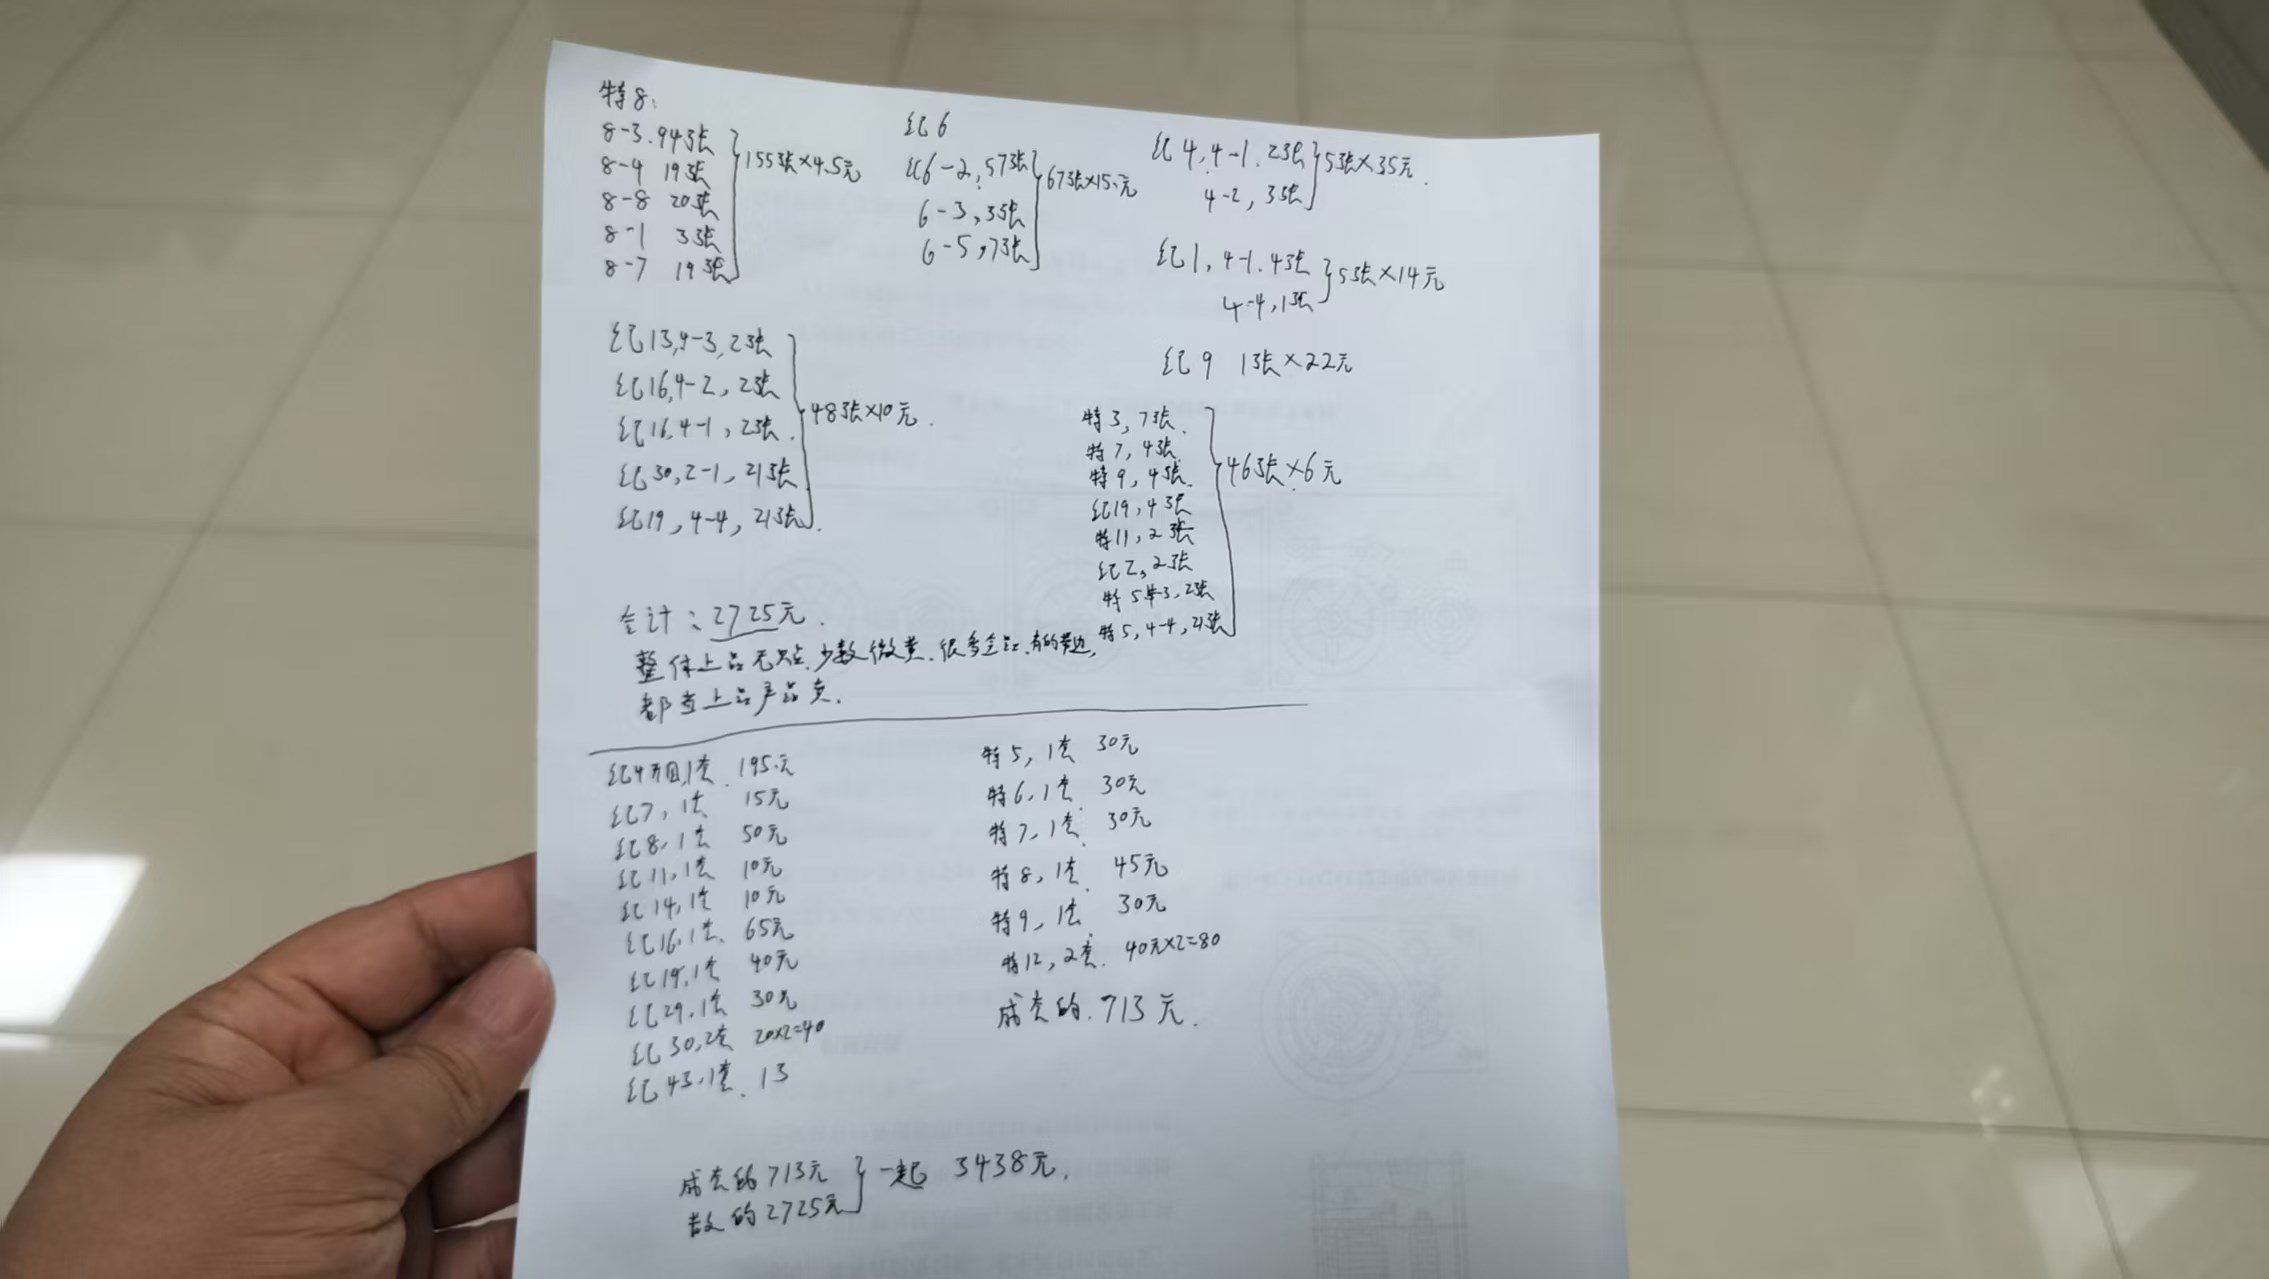 特8:
8-3.94张
8-4 19张
8-8 20张
8-1 3张
8-7 19张
155张×4.5元
纪6
纪6-2,57张
6-3,3张
6-5,7张
67张×15元
纪4,4-1.2张
4-2,3张
5张×35元.
纪1,4-1.4张
4-4,1张
5张×14元
纪9 1张×22元
纪13,4-3,2张
纪16,4-2,2张
纪16,4-1,2张.
纪30,2-1,21张
纪19,4-4,21张.
48张×10元.
特3,7张.
特7,4张.
特9,4张.
纪19,4张
特11,2张
纪2,2张
特5,4-4,21张
46张×6元
合计:2725元.
整体上品无缺点.少数微黄.很多全品.有的带边,
都当上品卖.
纪4开国,1套.195元
纪7,1套 15元
纪8,1套 50元
纪11,1套 10元
纪14,1套 10元
纪16,1套. 65元
纪19,1套 40元
纪29,1套 30元
纪30,2套 20×2=40
纪43,1套.13
特5,1套 30元
特6,1套. 30元
特7,1套. 30元
特8,1套. 45元
特9,1套. 30元
特12,2套. 40元×2=80
成套的.713元.
成套的713元
散的2725元
一起 3438元.